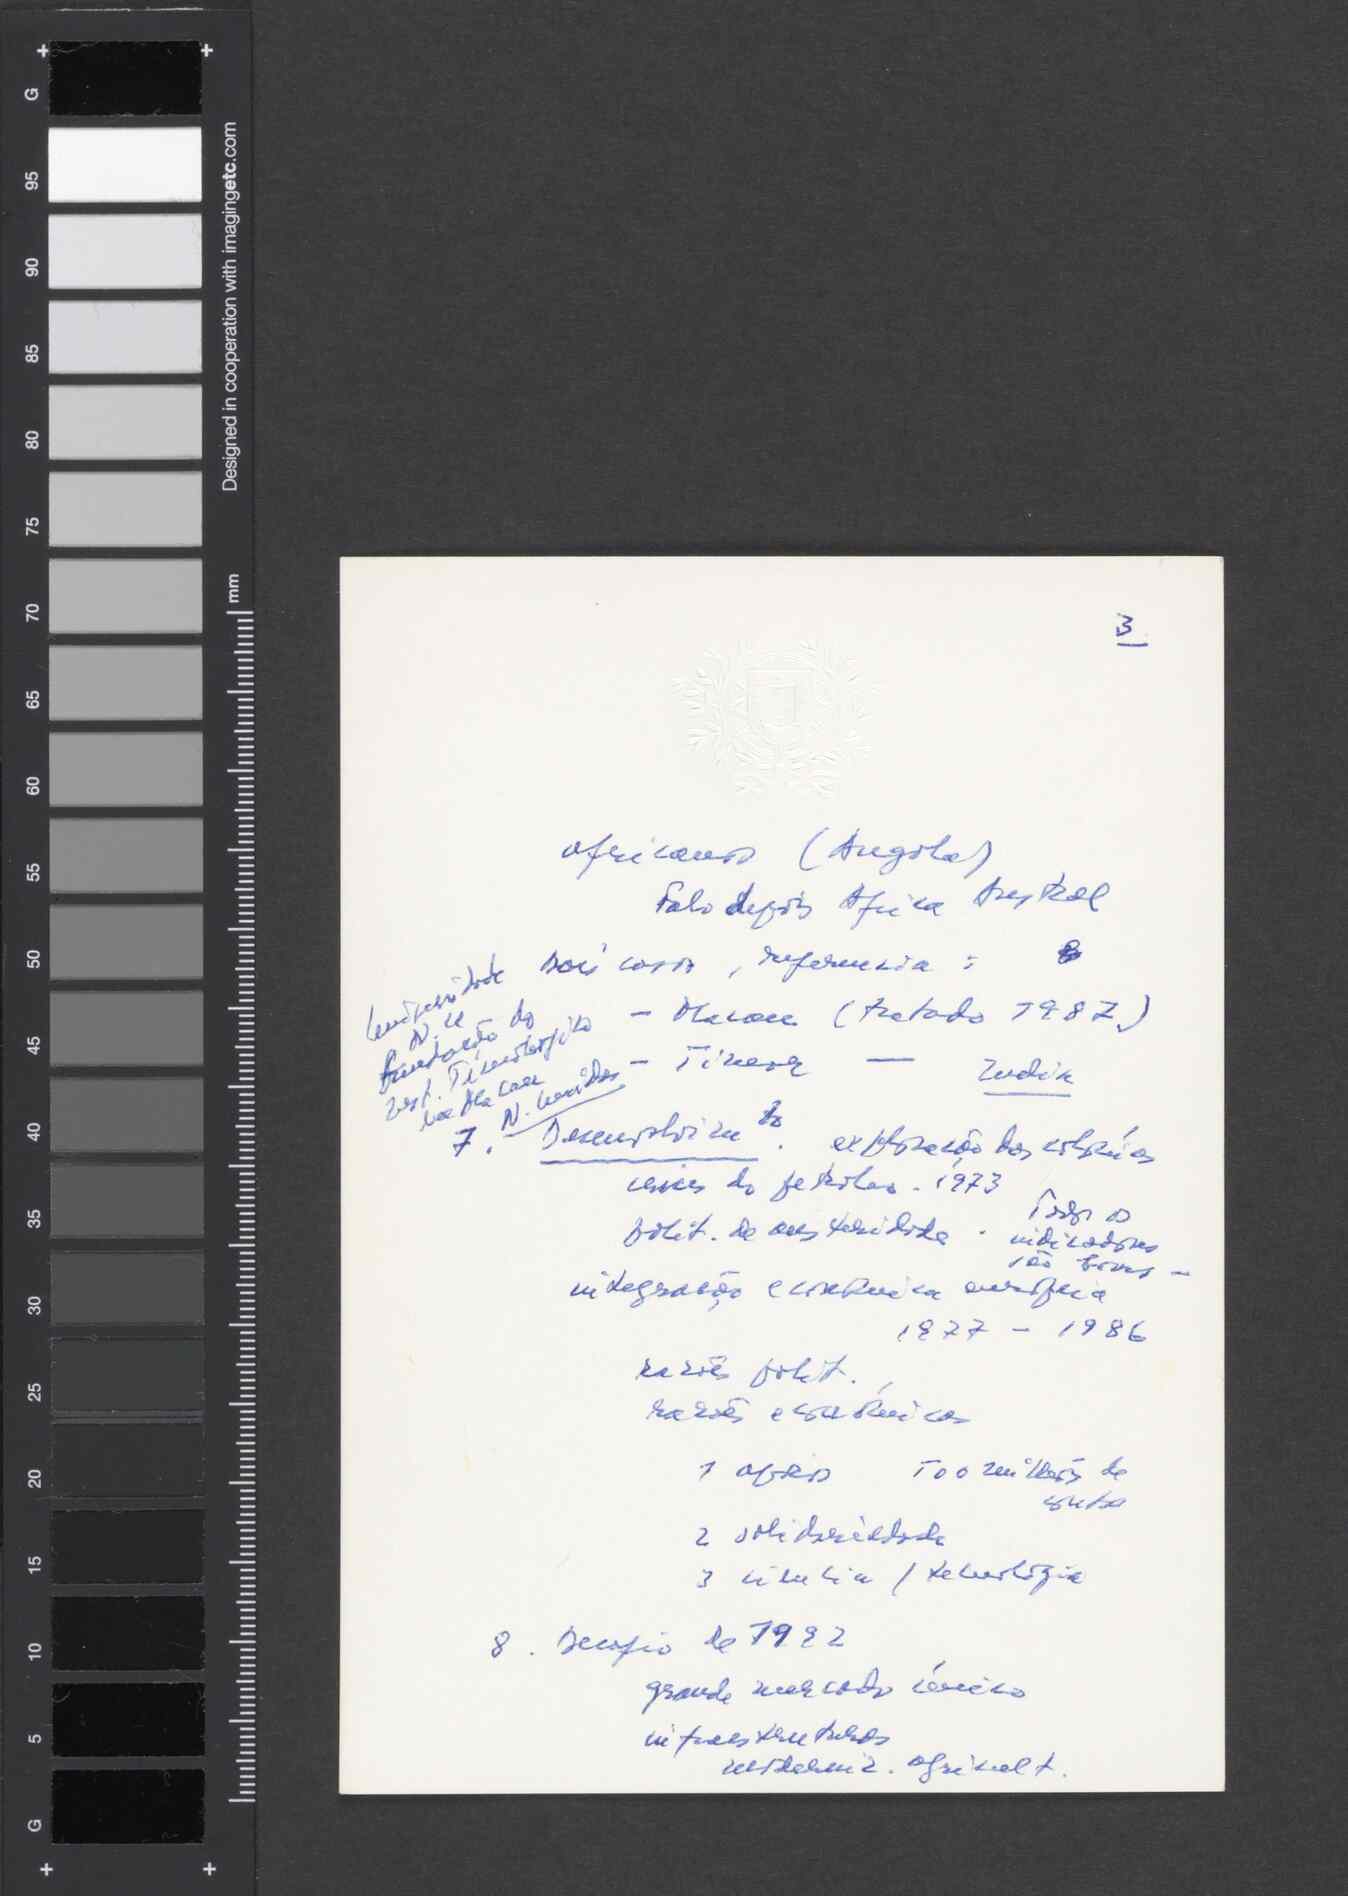 3
africanos (Angola)
Falo depois Africa Austral
Dois casos, referencia:
– Macau (tratado 1987)
– Timor — India
Universidade
N. U
Fundação do
Inst. Tecnológico
em Macau
N. Unidas
7. Desenvolvim to. exploração das colónias
crises do petroleo. 1973
polit. de austeridade. Todos os
indicadores
são bons –
integração económica europeia
1977 – 1986
razões polit.
razões económicas
1 apoios 100 milhões de
contos
2 solidariedade
3 ciencia / tecnologia
8. Desafio de 1992
grande mercado único
infraestruturas
moderniz. agricult.
G
95
90
85
80
75
70
65
60
55
50
45
40
35
30
25
20
15
10
5
G
Designed in cooperation with imagingetc.com
mm